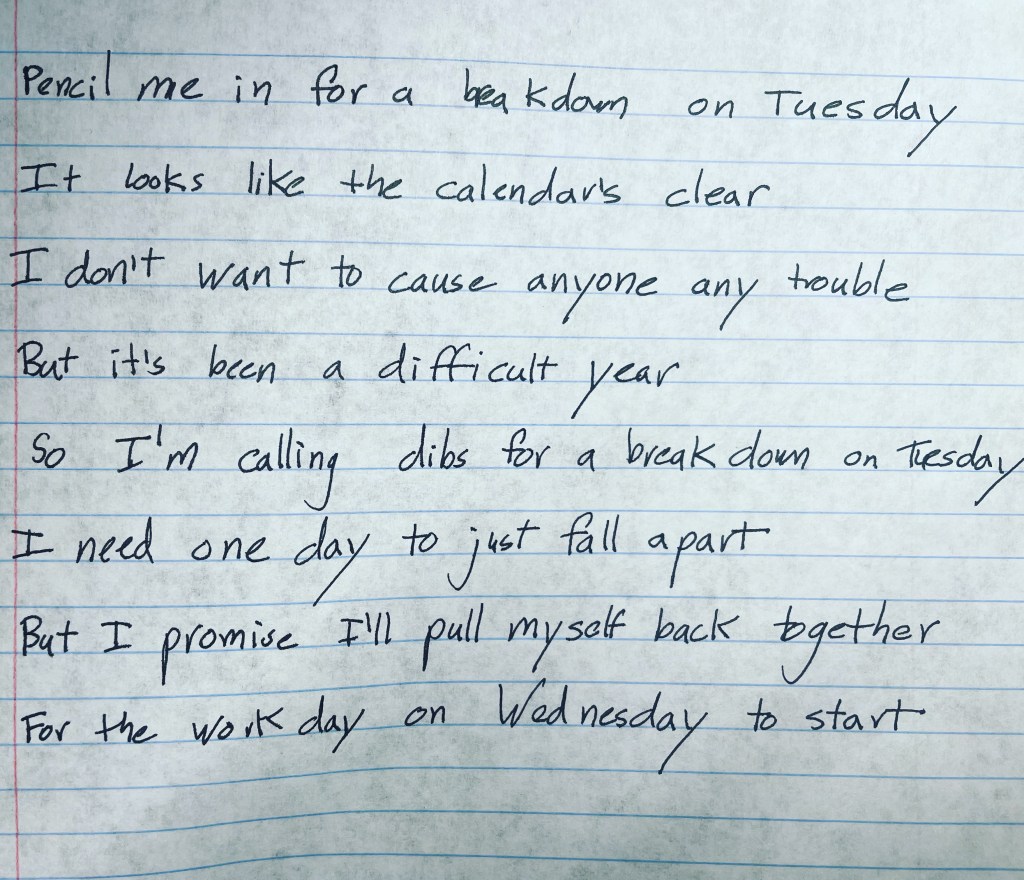 Pencil me in for a breakdown on Tuesday
It looks like the calendar's clear
I don't want to cause anyone any trouble
But it's been a difficult year
So I'm calling dibs for a breakdown on Tuesday
I need one day to just fall apart
But I promise I'll pull myself back together
For the workday on Wednesday to start